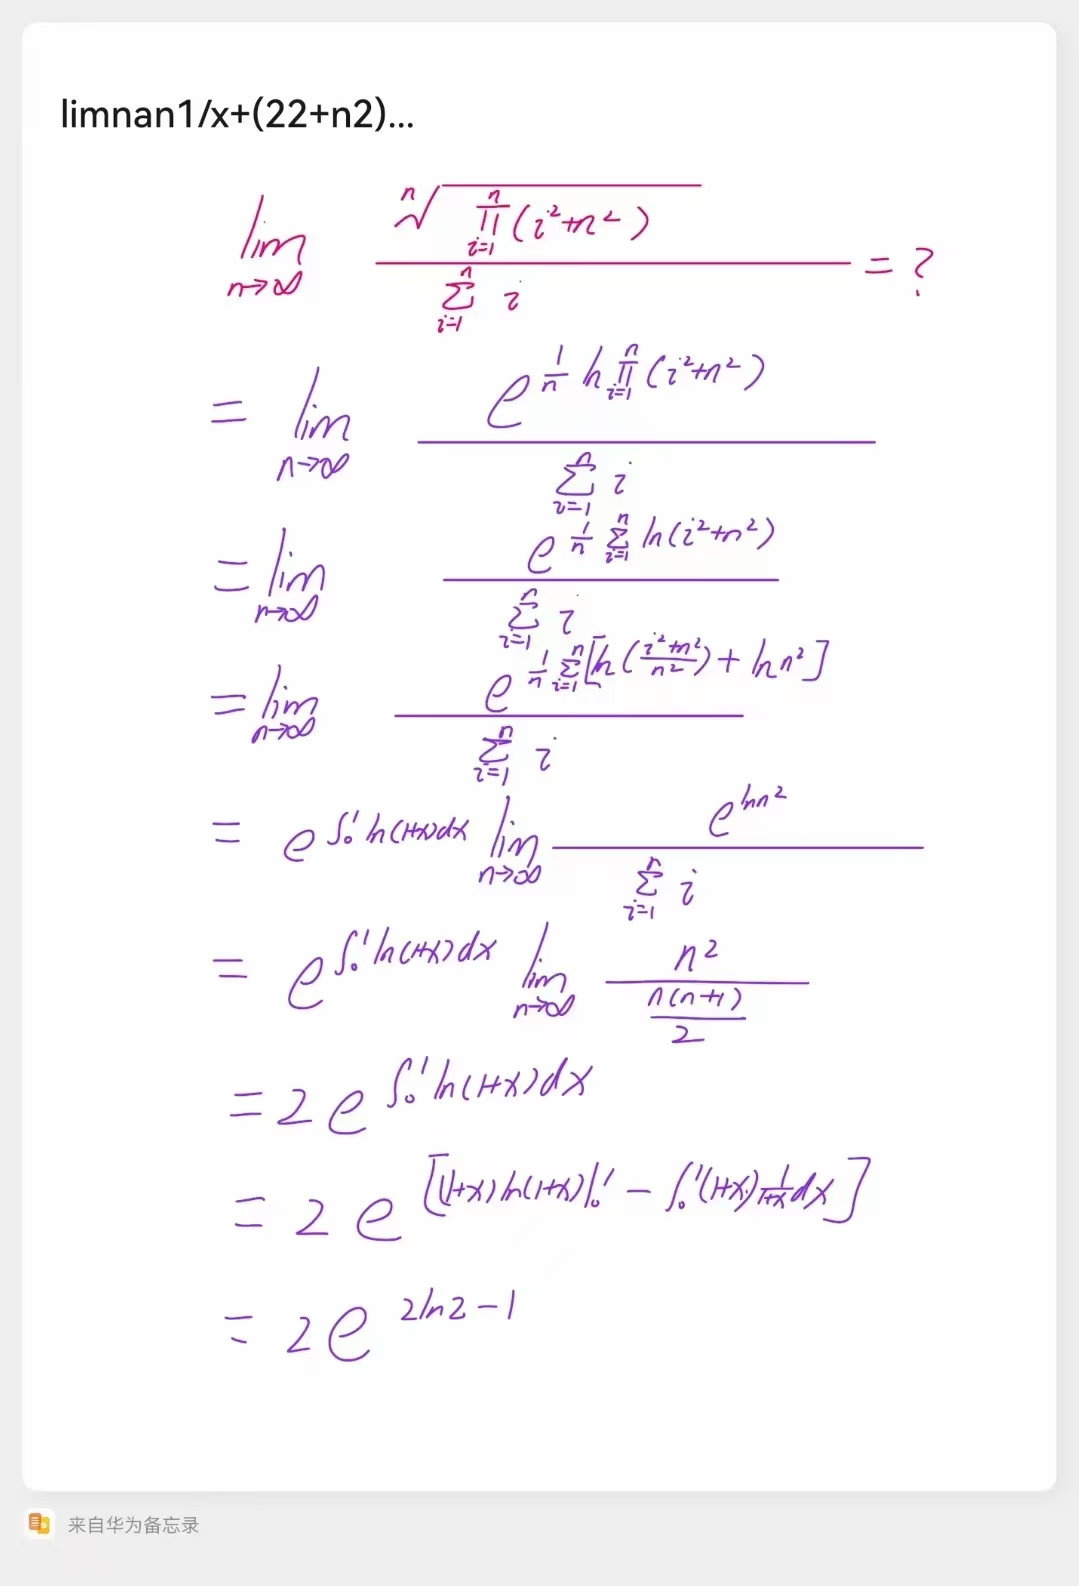 limnan1/x+(22+n2)...
lim n→∞ ⁿ√(∏_{i=1}^{n} (i²+n²)) / ∑_{i=1}^{n} i = ?
= lim n→∞ e^{1/n ln ∏_{i=1}^{n} (i²+n²)} / ∑_{i=1}^{n} i
= lim n→∞ e^{1/n ∑_{i=1}^{n} ln(i²+n²)} / ∑_{i=1}^{n} i
= lim n→∞ e^{1/n ∑_{i=1}^{n} [ln((i²+n²)/n²) + ln n²]} / ∑_{i=1}^{n} i
= e^{∫₀¹ ln(1+x)dx} lim n→∞ e^{ln n²} / ∑_{i=1}^{n} i
= e^{∫₀¹ ln(1+x)dx} lim n→∞ n² / (n(n+1)/2)
= 2 e^{∫₀¹ ln(1+x)dx}
= 2 e^{[(1+x)ln(1+x)|₀¹ − ∫₀¹ (1+x) 1/(1+x) dx]}
= 2 e^{2ln2−1}
来自华为备忘录